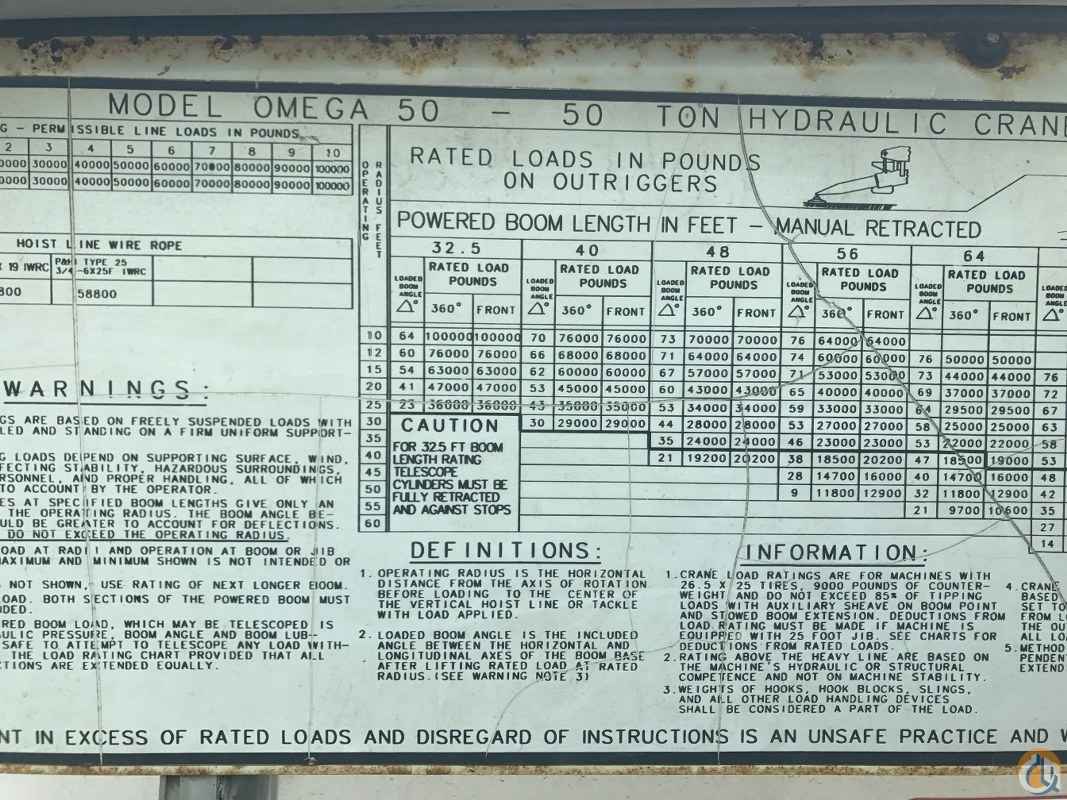 MODEL OMEGA 50 - 50 TON HYDRAULIC CRANE
G - PERMISSIBLE LINE LOADS IN POUNDS
2 3 4 5 6 7 8 9 10
0000 30000 40000 50000 60000 70000 80000 90000 100000
0000 30000 40000 50000 60000 70000 80000 90000 100000
HOIST LINE WIRE ROPE
X 19 IWRC P&H TYPE 25
3/4-6X25F IWRC
800 58800
WARNINGS:
GS ARE BASED ON FREELY SUSPENDED LOADS WITH
LED AND STANDING ON A FIRM UNIFORM SUPPORT-
G LOADS DEPEND ON SUPPORTING SURFACE, WIND,
FECTING STABILITY, HAZARDOUS SURROUNDINGS,
RSONNEL, AND PROPER HANDLING, ALL OF WHICH
TO ACCOUNT BY THE OPERATOR.
ES AT SPECIFIED BOOM LENGTHS GIVE ONLY AN
THE OPERATING RADIUS. THE BOOM ANGLE BE-
ULD BE GREATER TO ACCOUNT FOR DEFLECTIONS.
DO NOT EXCEED THE OPERATING RADIUS.
OAD AT RADII AND OPERATION AT BOOM OR JIB
AXIMUM AND MINIMUM SHOWN IS NOT INTENDED OR
NOT SHOWN, USE RATING OF NEXT LONGER BOOM.
OAD. BOTH SECTIONS OF THE POWERED BOOM MUST
DED.
RED BOOM LOAD, WHICH MAY BE TELESCOPED IS
ULIC PRESSURE, BOOM ANGLE AND BOOM LUB-
SAFE TO ATTEMPT TO TELESCOPE ANY LOAD WITH-
THE LOAD RATING CHART PROVIDED THAT ALL
TIONS ARE EXTENDED EQUALLY.
OPERATING
RADIUS FEET
RATED LOADS IN POUNDS
ON OUTRIGGERS
POWERED BOOM LENGTH IN FEET - MANUAL RETRACTED
32.5 40 48 56 64
LOADED BOOM ANGLE △° RATED LOAD POUNDS LOADED BOOM ANGLE △° RATED LOAD POUNDS LOADED BOOM ANGLE △° RATED LOAD POUNDS LOADED BOOM ANGLE △° RATED LOAD POUNDS LOADED BOOM ANGLE △° RATED LOAD POUNDS LOADED BOOM ANGLE △°
360° FRONT 360° FRONT 360° FRONT 360° FRONT 360° FRONT
10 64 100000 100000 70 76000 76000 73 70000 70000 76 64000 64000
12 60 76000 76000 66 68000 68000 71 64000 64000 74 60000 60000 76 50000 50000
15 54 63000 63000 62 60000 60000 67 57000 57000 71 53000 53000 73 44000 44000 76
20 41 47000 47000 53 45000 45000 60 43000 43000 65 40000 40000 69 37000 37000 72
25 23 36000 36000 43 35000 35000 53 34000 34000 59 33000 33000 64 29500 29500 67
30 30 29000 29000 44 28000 28000 53 27000 27000 58 25000 25000 63
35 35 24000 24000 46 23000 23000 53 22000 22000 58
40 21 19200 20200 38 18500 20200 47 18500 19000 53
45 28 14700 16000 40 14700 16000 48
50 9 11800 12900 32 11800 12900 42
55 21 9700 10600 35
60 27
14
CAUTION
FOR 32.5 FT BOOM
LENGTH RATING
TELESCOPE
CYLINDERS MUST BE
FULLY RETRACTED
AND AGAINST STOPS
DEFINITIONS:
1. OPERATING RADIUS IS THE HORIZONTAL
DISTANCE FROM THE AXIS OF ROTATION
BEFORE LOADING TO THE CENTER OF
THE VERTICAL HOIST LINE OR TACKLE
WITH LOAD APPLIED.
2. LOADED BOOM ANGLE IS THE INCLUDED
ANGLE BETWEEN THE HORIZONTAL AND
LONGITUDINAL AXES OF THE BOOM BASE
AFTER LIFTING RATED LOAD AT RATED
RADIUS. (SEE WARNING NOTE 3)
INFORMATION:
1. CRANE LOAD RATINGS ARE FOR MACHINES WITH
26.5 X 25 TIRES, 9000 POUNDS OF COUNTER-
WEIGHT AND DO NOT EXCEED 85% OF TIPPING
LOADS WITH AUXILIARY SHEAVE ON BOOM POINT
AND STOWED BOOM EXTENSION. DEDUCTIONS FROM
LOAD RATING MUST BE MADE IF MACHINE IS
EQUIPPED WITH 25 FOOT JIB. SEE CHARTS FOR
DEDUCTIONS FROM RATED LOADS.
2. RATING ABOVE THE HEAVY LINE ARE BASED ON
THE MACHINE'S HYDRAULIC OR STRUCTURAL
COMPETENCE AND NOT ON MACHINE STABILITY.
3. WEIGHTS OF HOOKS, HOOK BLOCKS, SLINGS,
AND ALL OTHER LOAD HANDLING DEVICES
SHALL BE CONSIDERED A PART OF THE LOAD.
4. CRANE
BASED
SET TO
FROM L
THE OU
ALL LO
5. METHOD
PENDENT
EXTEND
NT IN EXCESS OF RATED LOADS AND DISREGARD OF INSTRUCTIONS IS AN UNSAFE PRACTICE AND W